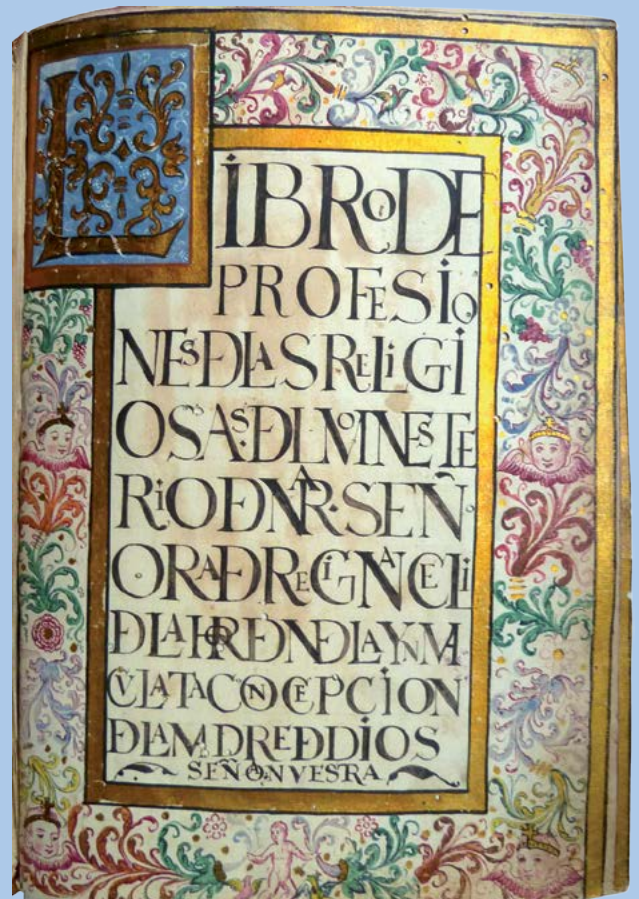 LIBRO DE
PROFESIO
NES ĐLAS RELIGI
OSAS: ĐL MONESTE
RIO Đ NRA. SEÑ
ORA Đ REGINA CELI
ĐLA HORĐN ĐLA YNMA
CVLATA CONCEPCION
ĐLA MADRE Đ DIOS
SEÑORA NVESTRA